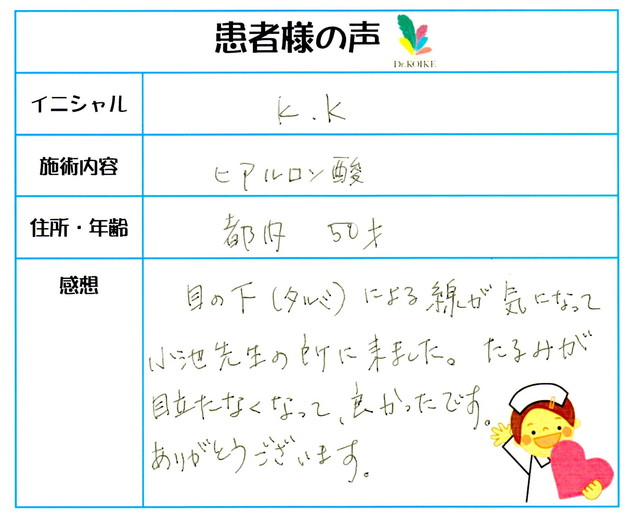 患者様の声
Dr.KOIKE
イニシャル
K.K
施術内容
ヒアルロン酸
住所・年齢
都内 50才
感想
目の下(タルミ)による線が気になって
小池先生の所に来ました。たるみが
目立たなくなって、良かったです。
ありがとうございます。